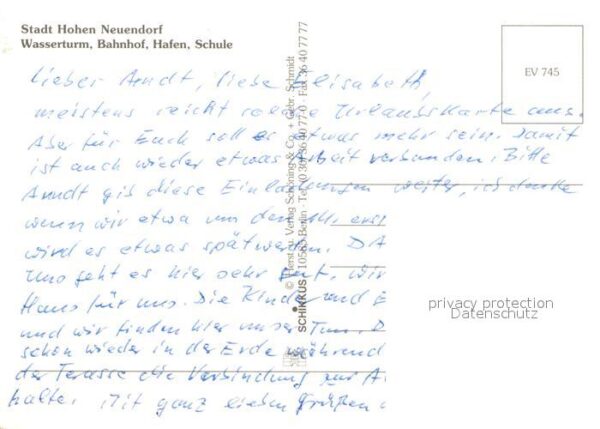 Stadt Hohen Neuendorf
Wasserturm, Bahnhof, Hafen, Schule
EV 745
Lieber Arndt, liebe Elisabeth,
meistens reicht solche Urlaubskarte aus.
Aber für Euch soll es etwas mehr sein. Damit
ist auch wieder etwas Arbeit verbunden: Bitte
Arndt gib diese Einladungen weiter, ich denke
wenn wir etwa um den
wird es etwas spät werden. DA
Uns geht es hier sehr gut, wir
Haus für uns. Die Kinder und E
und wir finden hier unser Tun. D
schon wieder in der Erde während
der Terasse die Verbindung zur A
halte. Mit ganz lieben Grüßen
© Verlag Schöning & Co. + Gebr. Schmidt
SCHIKKUS 10585 Berlin · Tel. 0 30/36 40 77 0 · Fax 36 40 77 77
privacy protection
Datenschutz